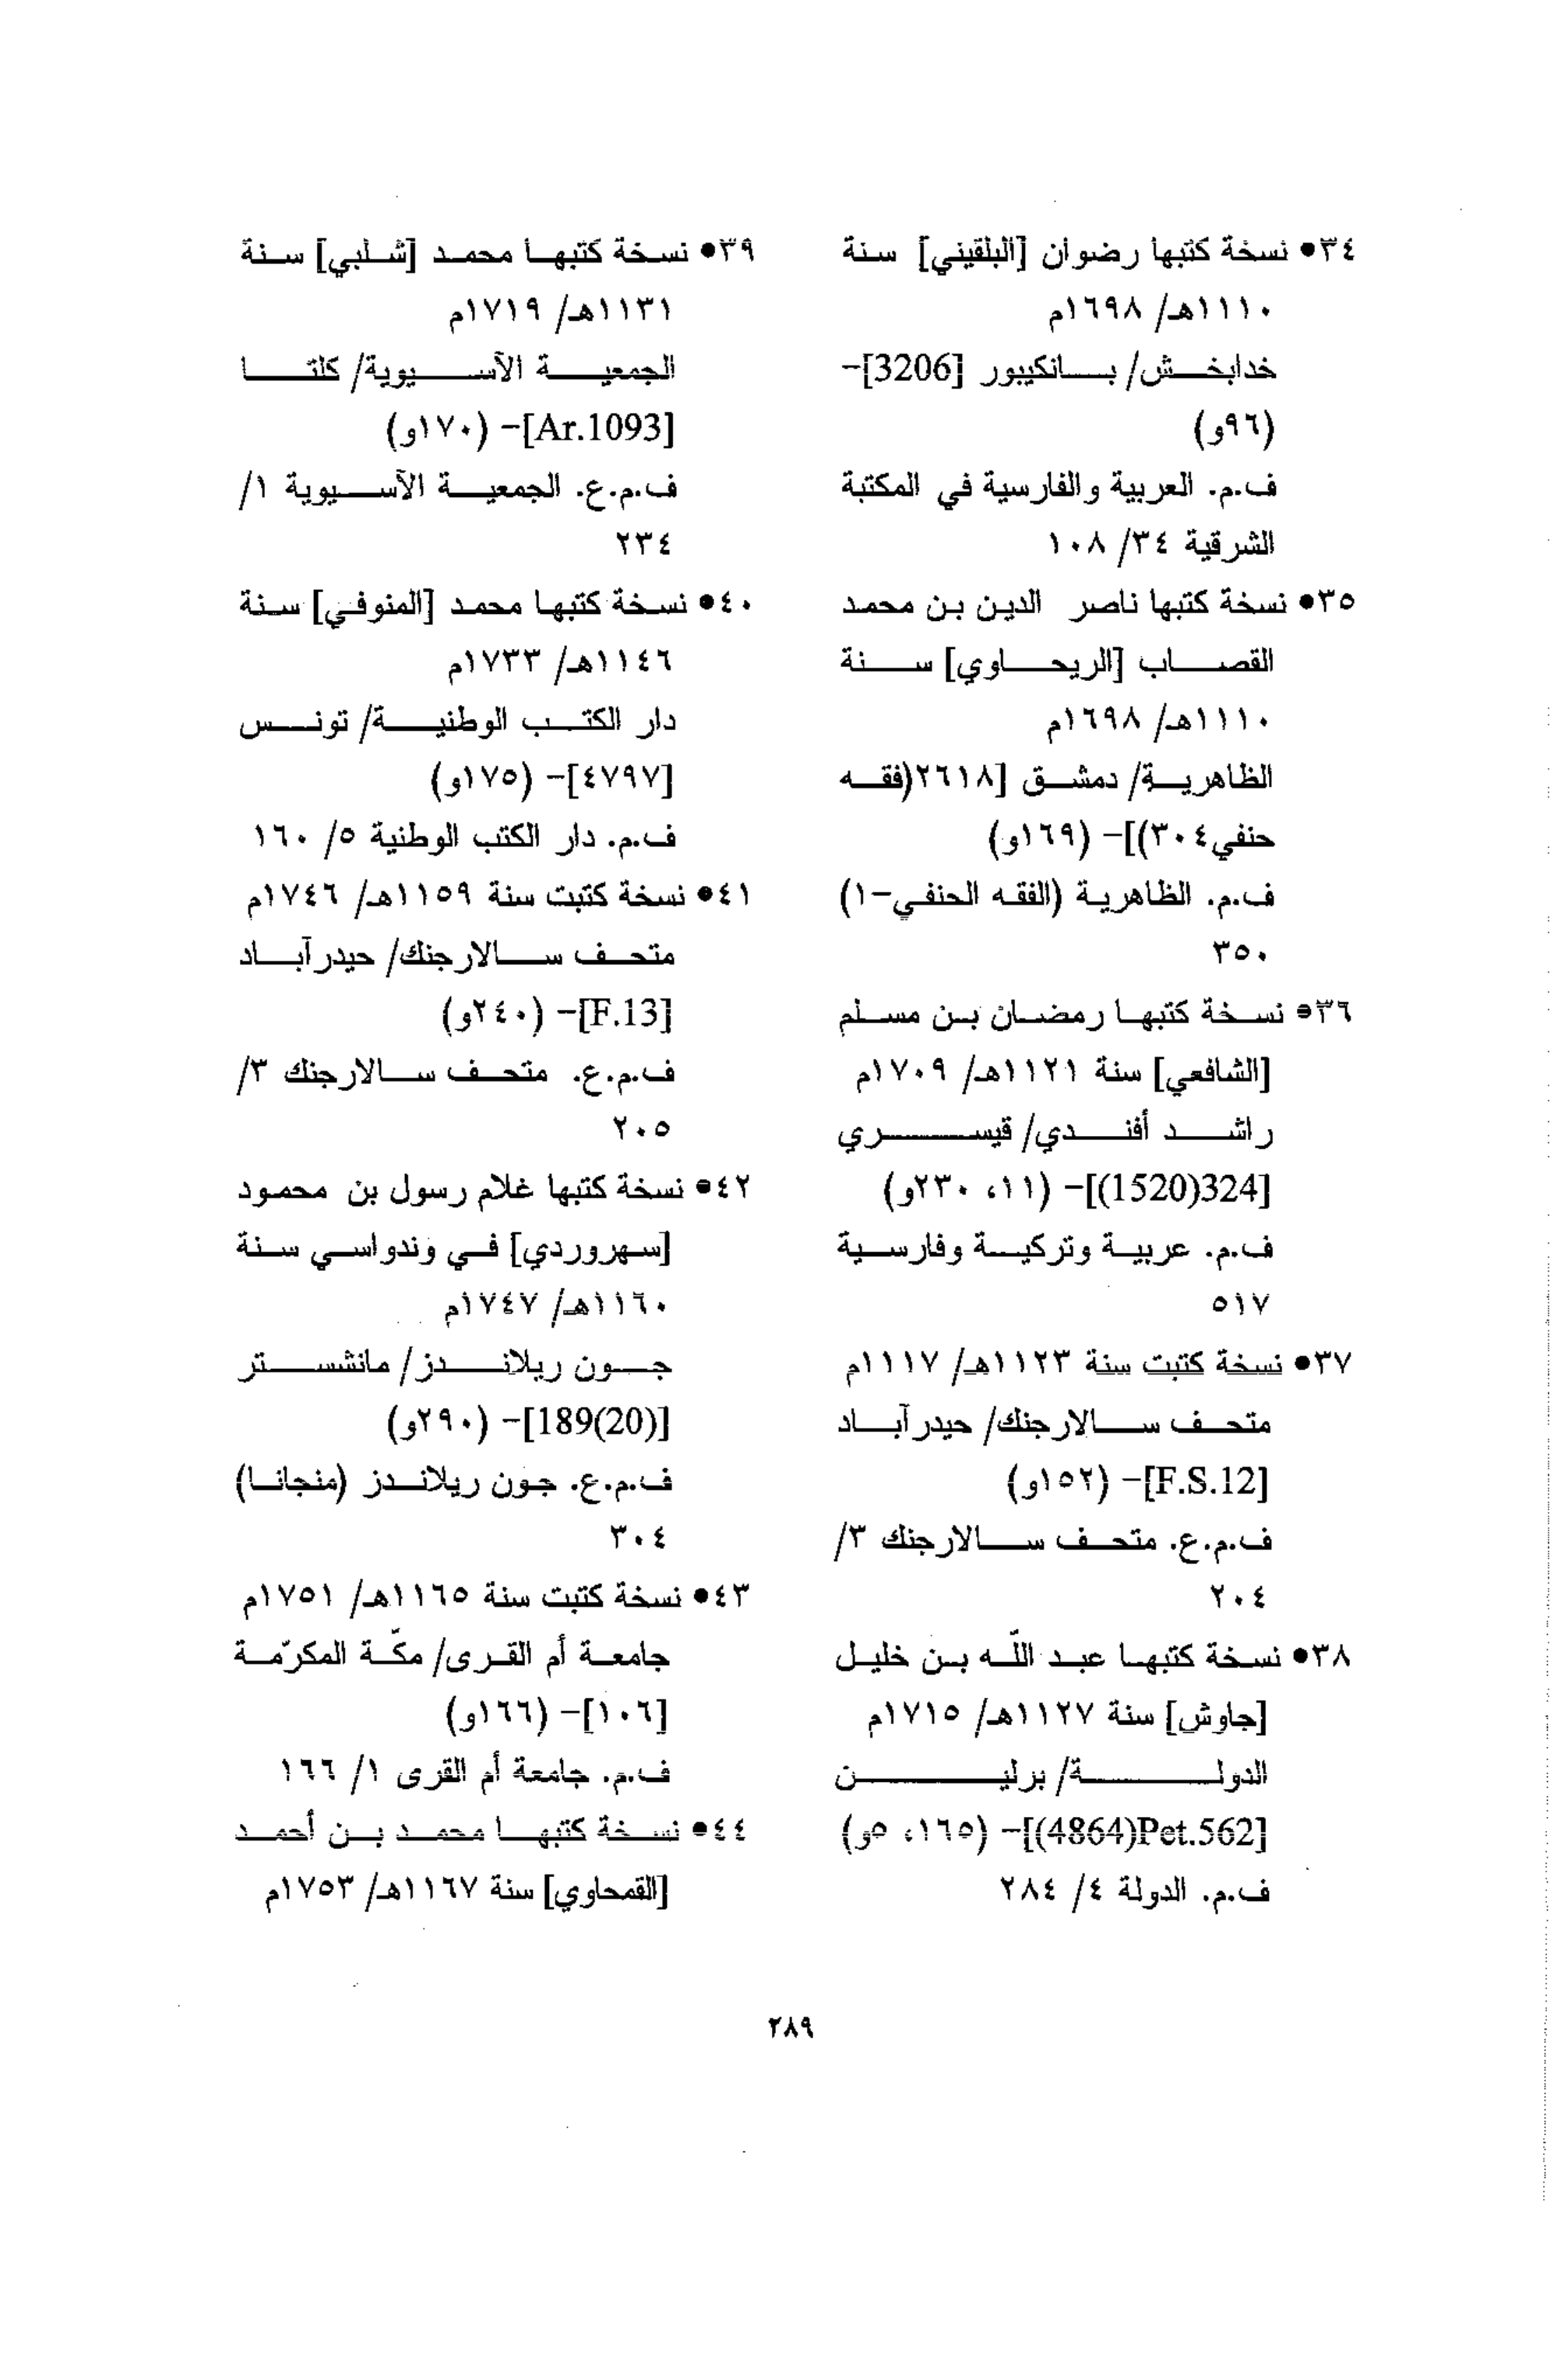 ٣٤• نسخة كتبها رضوان [البلقيني] سنة
١١١٠هـ/ ١٦٩٨م
خدابخش/ بانكيبور [3206]-
(٩٦و)
ف.م. العربية والفارسية في المكتبة
الشرقية ٣٤/ ١٠٨
٣٥• نسخة كتبها ناصر الدين بن محمد
القصاب [الريحاوي] سنة
١١١٠هـ/ ١٦٩٨م
الظاهرية/ دمشق [٢٦١٨(فقه
حنفي٣٠٤)]- (١٦٩و)
ف.م. الظاهرية (الفقه الحنفي-١)
٣٥٠
٣٦• نسخة كتبها رمضان بن مسلم
[الشافعي] سنة ١١٢١هـ/ ١٧٠٩م
راشد أفندي/ قيسري
[324(1520)]- (١١، ٢٣٠و)
ف.م. عربية وتركية وفارسية
٥١٧
٣٧• نسخة كتبت سنة ١١٢٣هـ/ ١١١٧م
متحف سالارجنك/ حيدرآباد
[F.S.12]- (١٥٢و)
ف.م.ع. متحف سالارجنك ٣/
٢٠٤
٣٨• نسخة كتبها عبد اللّه بن خليل
[جاوش] سنة ١١٢٧هـ/ ١٧١٥م
الدولة/ برلين
[Pet.562(4864)]- (١٦٥، ٥و)
ف.م. الدولة ٤/ ٢٨٤
٣٩• نسخة كتبها محمد [شلبي] سنة
١١٣١هـ/ ١٧١٩م
الجمعية الآسيوية/ كلتا
[Ar.1093]- (١٧٠و)
ف.م.ع. الجمعية الآسيوية ١/
٢٣٤
٤٠• نسخة كتبها محمد [المنوفي] سنة
١١٤٦هـ/ ١٧٣٣م
دار الكتب الوطنية/ تونس
[٤٧٩٧]- (١٧٥و)
ف.م. دار الكتب الوطنية ٥/ ١٦٠
٤١• نسخة كتبت سنة ١١٥٩هـ/ ١٧٤٦م
متحف سالارجنك/ حيدرآباد
[F.13]- (٢٤٠و)
ف.م.ع. متحف سالارجنك ٣/
٢٠٥
٤٢• نسخة كتبها غلام رسول بن محمود
[سهروردي] في وندواسي سنة
١١٦٠هـ/ ١٧٤٧م
جون ريلاندز/ مانشستر
[189(20)]- (٢٩٠و)
ف.م.ع. جون ريلاندز (منجانا)
٣٠٤
٤٣• نسخة كتبت سنة ١١٦٥هـ/ ١٧٥١م
جامعة أم القرى/ مكّة المكرّمة
[١٠٦]- (١٦٦و)
ف.م. جامعة أم القرى ١/ ١٦٦
٤٤• نسخة كتبها محمد بن أحمد
[القمحاوي] سنة ١١٦٧هـ/ ١٧٥٣م
٢٨٩